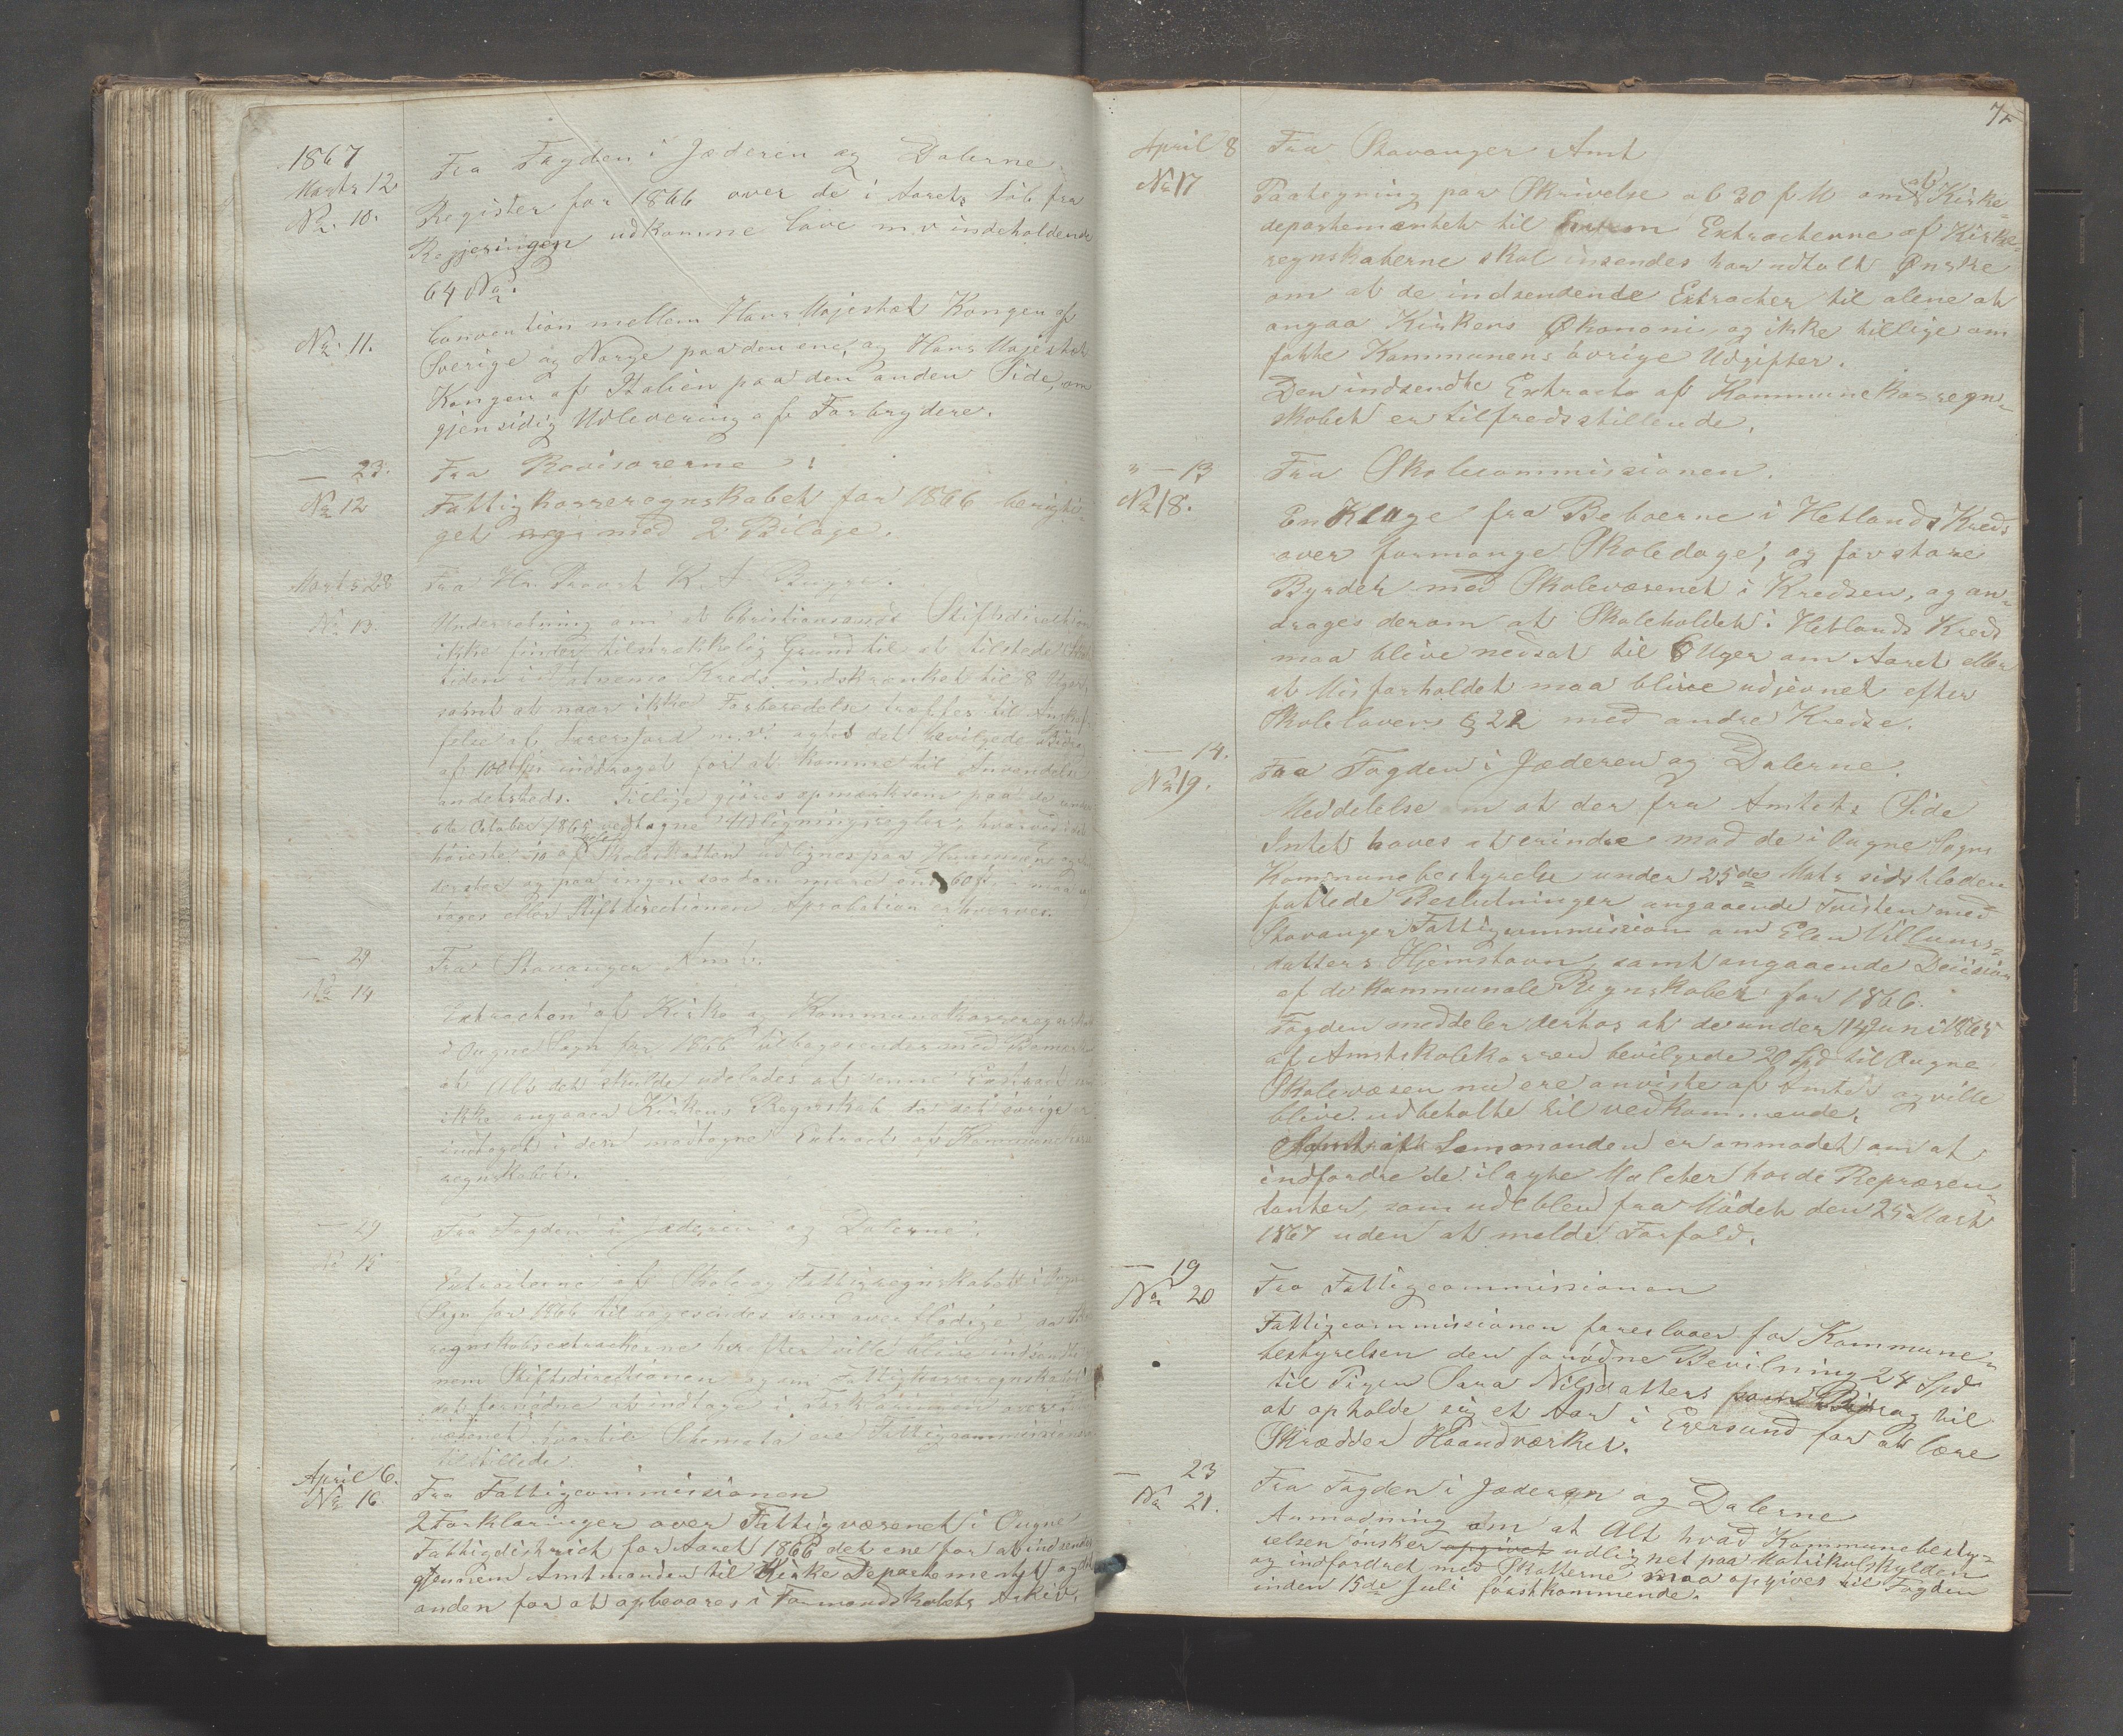 1867
Marts 12
No. 10.
Fra Fogden i Jæderen og Dalerne
Register for 1866 over de i Aarets Löb fra
Regjeringen udkomne Love m. v indeholdende
64 No.
No. 11.
Convention mellem Hans Majestæt Kongen af
Sverige og Norge paa den ene, og Hans Majestæt
Kongen af Italien paa den anden Side, om
gjensidig Udlevering af Forbrydere.
— 23.
No 12
Fra Revisorerne
Fattigkasseregnskabet for 1866 berigti-
get med 2 Bilage.
Marts 28
No 13.
Fra Hr. Provst
Underretning om at Christiansands Stiftsdirection
ikke finder tilstrækkelig Grund til at tilstede
tiden i Kreds indskrænket til 8 Uger,
samt at naar ikke Forberedelse træffes til Anskaf-
felse af m. v. det bevilgede Bidrag
af 100 inddraget for at komme til Anvendelse
andetsteds. Tillige gjöres opmærksom paa de under
6te October 1865 vedtagne Udligningsregler, hvorved
höieste af Skoleskatten udlignes paa Huusmænd og
og paa ingen saadan mere end 60 maa
tages eller Stiftdirectionens Aprobation erhverves.
— 29
No 14
Fra Stavanger Amt.
Extracten af Kirke og Kommunekasseregnskab
i Ougne Sogn for 1866 tilbagesendes med Bemærk
at Alt det skulde udelades af denne Extract som
ikke angaaer Kirkens Regnskab, da det övrige er
indtaget i den modtagne Extract af Kommunekasse
regnskabet.
— 29
No 15
Fra Fogden i Jæderen og Dalerne.
Extracterne af Skole og Fattigregnskabet i Ougne
Sogn for 1866 tilbagesendes som overflödige, da
regnskabsextracterne herefter ville blive indsendte
nem Stiftsdirectionen og om Fattigkasseregnskabet
det fornödne at indtage i Forklaringen over
væsenet, hvortil Schemata ere Fattigcommissionen
tilstillede.
April 6.
No 16
Fra Fattigcommissionen
2 Forklaringer over Fattigvæsenet i Ougne
Fattigdistrict for Aaret 1866 det ene for at indsendes
gjennem Amtmanden til Kirke Departementet og det
anden for at opbevares i Formandskabets Arkiv.
72
April 8
No 17
Fra Stavanger Amt
Paategning paa Skrivelse af 30 f. M om at Kirke-
departementet til hvem Extracterne af Kirke-
regnskaberne skal insendes har udtalt Ønske
om at de indsendende Extracter til alene at
angaa Kirkens Økonomi, og ikke tillige om
fatte Kommunens övrige Udgifter.
Den indsendte Extract af Kommunekasseregn-
skabet er tilfredsstillende.
" — 13
No 18.
Fra Skolecommissionen.
En Klage fra Beboerne i Hetlands Kreds
over formange Skoledage, og for store
Byrder med Skolevæsenet i Kredsen, og an-
drages derom at Skoleholdet i Hetlands Kreds
maa blive nedsat til 6 Uger om Aaret eller
at Misforholdet maa blive udjevnet efter
Skolelovens § 22 med andre Kredse.
— 14.
No 19.
Fra Fogden i Jæderen og Dalerne.
Meddelelse om at der fra Amtets Side
Intet haves at erindre mod de i Ougne Sogns
Kommunebestyrelse under 25de Mats sidstleden
fattede Beslutninger angaaende Tvisten med
Stavanger Fattigcommission om Elen Villums-
datters Hjemstavn, samt angaaende Decision
af de kommunale Regnskaber for 1866.
Fogden meddeler derhos at de under 14 Juni 1865
af Amtskolekassen bevilgede 20 Spd til Ougne
Skolevæsen nu ere anviste af Amtet og ville
blive udbetalte til vedkommende.
Lensmanden er anmodet om at
indfordre de ilagte Mulcter hos de Repræsen
tanter, som udebleve fra Mödet den 25 Marts
1867 uden at melde Forfald.
— 19
No 20
Fra Fattigcommissionen
Fattigcommissionen foreslaaer for Kommune-
bestyrelsen den fornödne Bevilning 24 Spd
til Pigen Sara Nilsdatters Bidrag til
at opholde sig et Aar i Egersund for at lære
Skrædder Haandværket.
— 23
No 21.
Fra Fogden i Jæderen og Dalerne
Anmodning om at Alt hvad Kommunebesty-
relsen önsker opgivet udlignet paa Matrikulskylden
og indfordret med Skatterne maa opgives til Fogden
inden 15de Juli förstkommende.